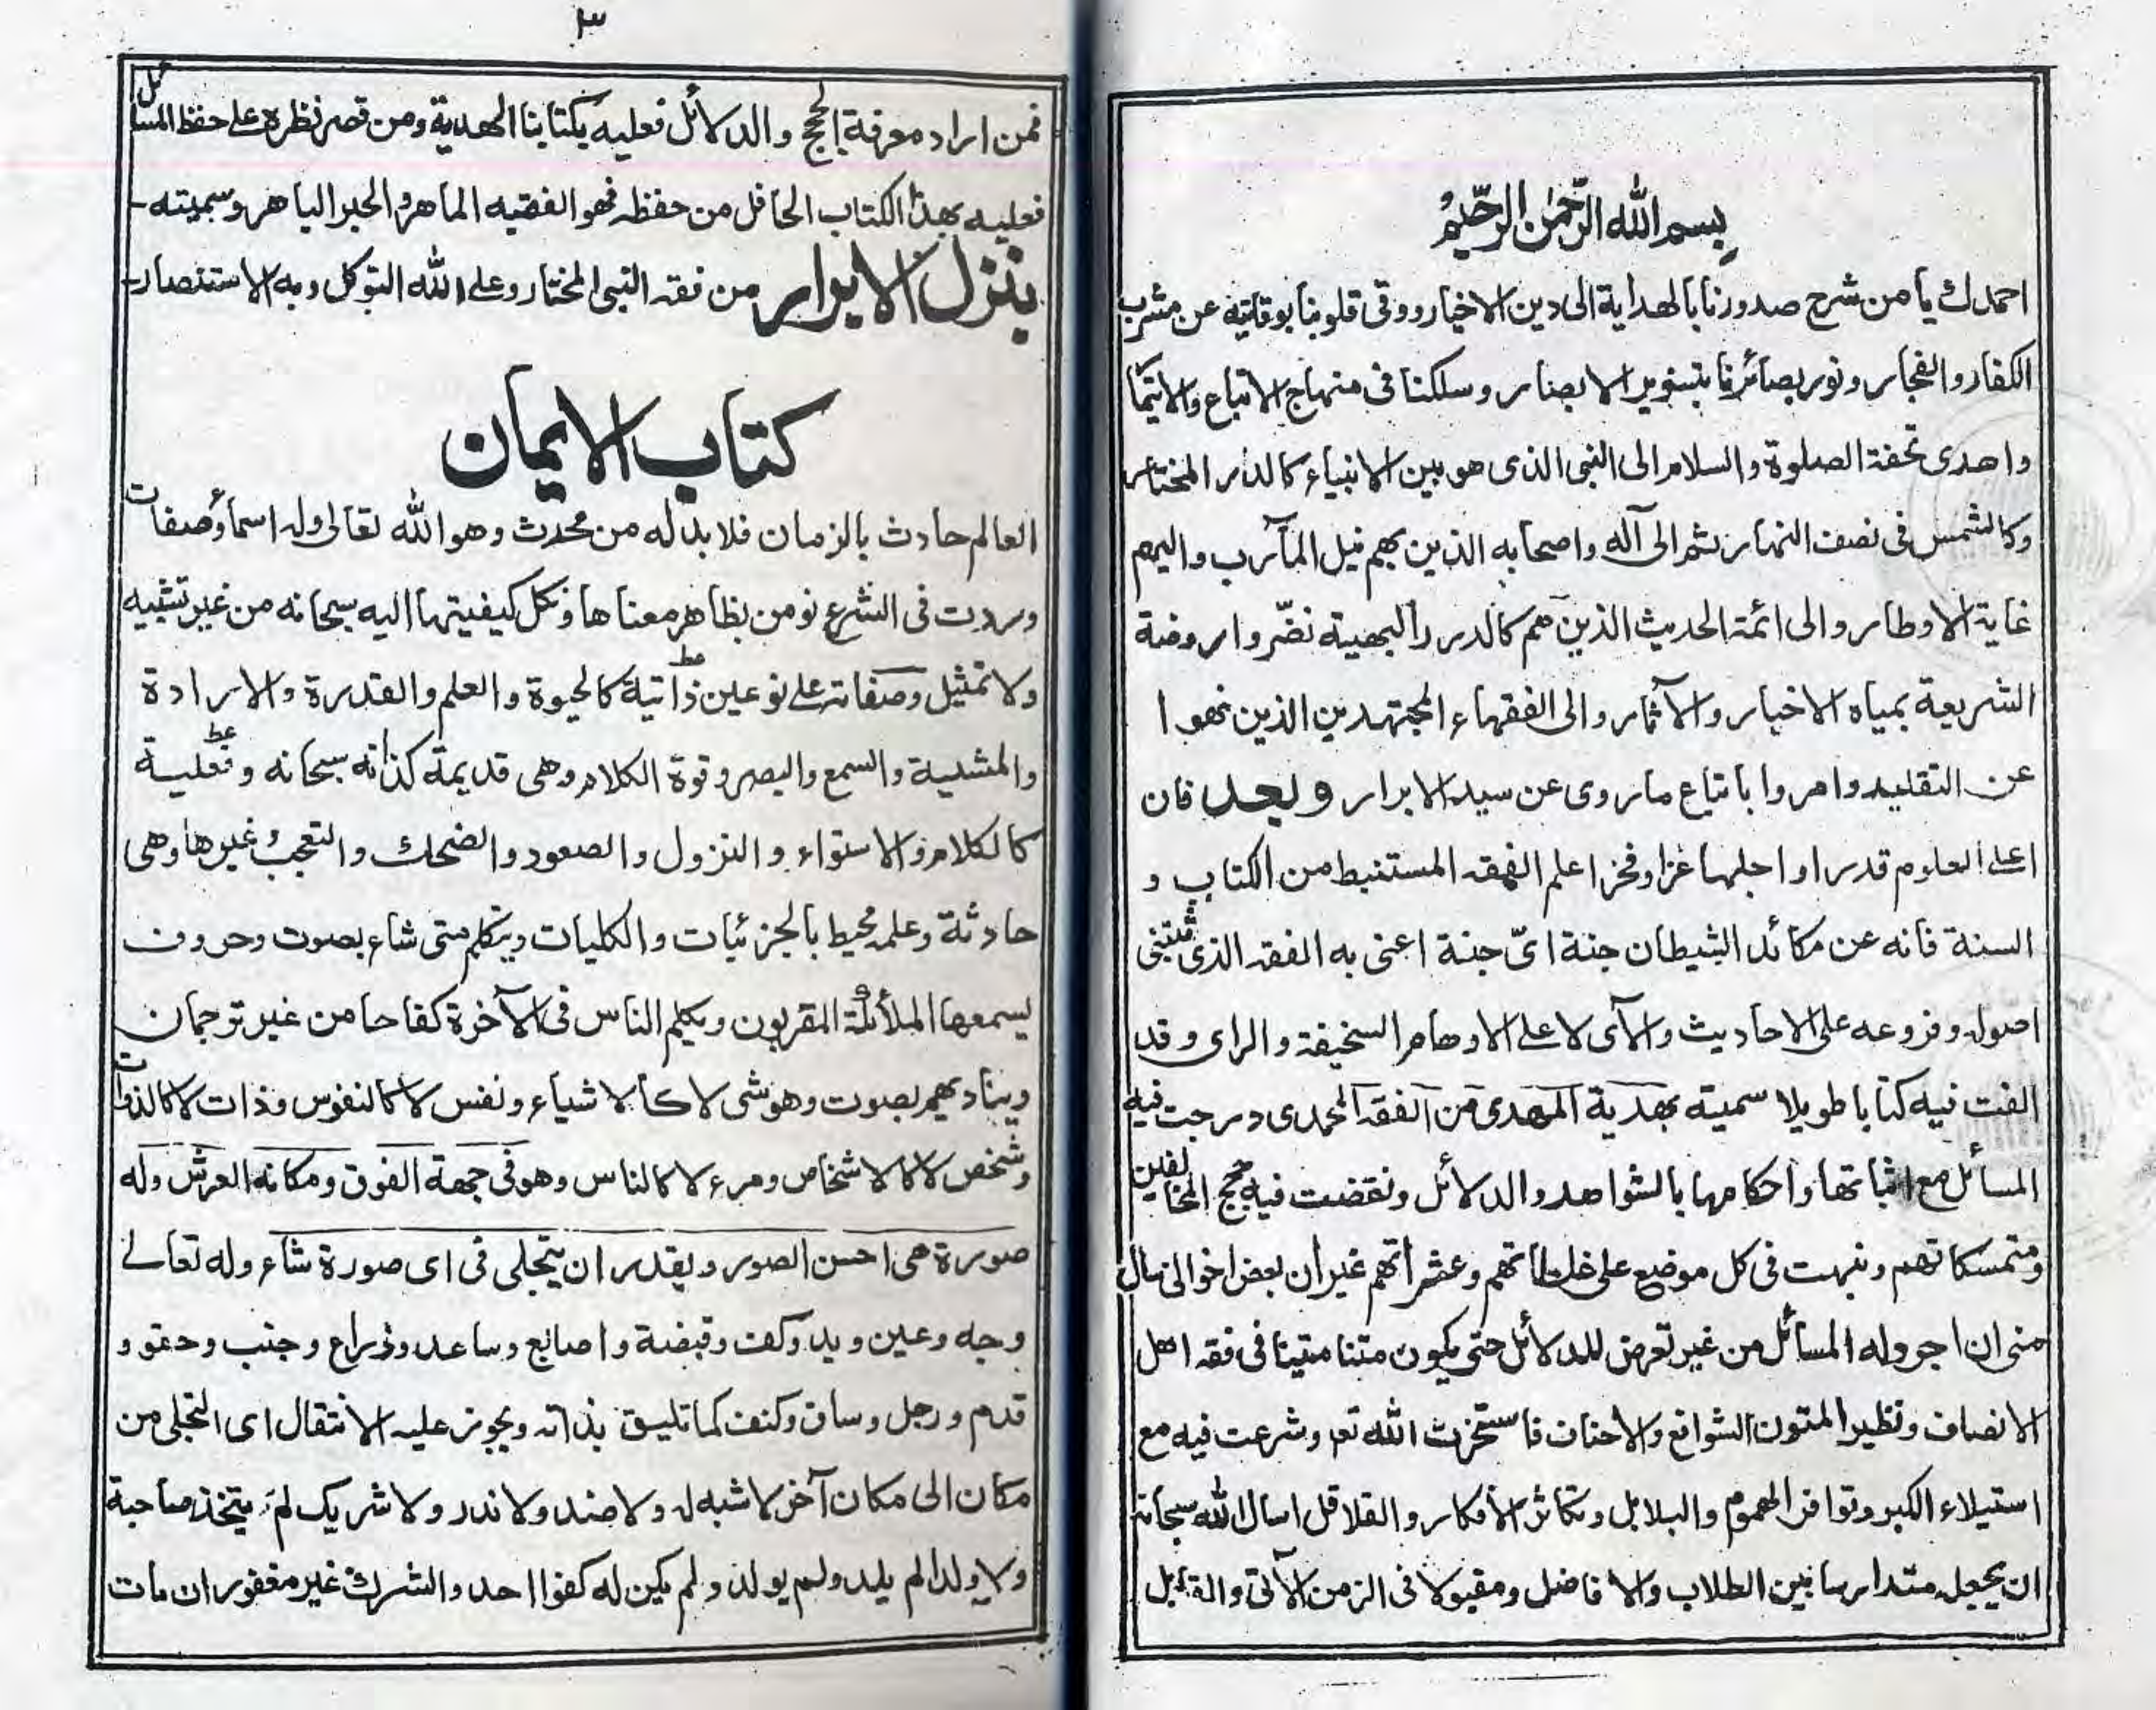 بسم الله الرحمن الرحيم
احمدك يا من شرح صدورنا بالهداية الى دين الاخيار ووقى قلوبنا بوقايته عن مشرب
الكفار والفجار ونور بصائرنا بتنوير الابصار وسلكنا فى منهاج الاتباع والايتما
واهدى تحفة الصلوة والسلام الى النبى الذى هو بين الانبياء كالدر المختار
وكالشمس فى نصف النهار ثم الى آله واصحابه الذين بهم نيل المآرب واليهم
غاية الاوطار والى ائمة الحديث الذين هم كالدرر البهية نضّروا روضة
الشريعة بمياه الاخبار والآثار والى الفقهاء المجتهدين الذين نهوا
عن التقليد وامروا باتباع ما روى عن سيد الابرار وبعد فان
اعلى العلوم قدرا واجلها عزا وفخرا علم الفقه المستنبط من الكتاب و
السنة فانه عن مكائد الشيطان جنة اىّ جنة اعنى به الفقه الذى تبتنى
اصوله وفروعه على الاحاديث والآى لا على الاوهام السخيفة والراى وقد
الفت فيه كتابا طويلا سميته بهدية المهدى من الفقه المحمدى درجت فيه
المسائل مع اثباتها واحكامها بالشواهد والدلائل ونقضت فيه حجج المخالفين
ومتمسكاتهم ونبهت فى كل موضع على غلطاتهم وعثراتهم غير ان بعض اخوانى سال
منى ان اجرد له المسائل من غير تعرض للدلائل حتى يكون متنا متينا فى فقه اهل
الانصاف ونظير المتون الشوافع والاحناف فاستخرت الله تع وشرعت فيه مع
استيلاء الكبر وتوافر الهموم والبلابل وتكاثر الافكار والقلاقل اسال الله سبحانه
ان يجعله متدارسا بين الطلاب والافاضل ومقبولا فى الزمن الآتى والقابل
٣
فمن اراد معرفة الحجج والدلائل فعليه بكتابنا الهدية ومن قصر نظره على حفظ المسائل
فعليه بهذا الكتاب الحافل من حفظه فهو الفقيه الماهر والحبر الباهر وسميته
بنزل الابرار من فقه النبى المختار وعلى الله التوكل وبه الاستنصار
كتاب الايمان
العالم حادث بالزمان فلا بد له من محدث وهو الله تعالى وله اسماء وصفات
وردت فى الشرع نومن بظاهر معناها ونكل كيفيتها اليه سبحانه من غير تشبيه
ولا تمثيل وصفاته على نوعين ذاتية كالحيوة والعلم والقدرة والارادة
والمشيية والسمع والبصر وقوة الكلام وهى قديمة كذاته سبحانه وفعلية
كالكلام والاستواء والنزول والصعود والضحك والتعجب وغيرها وهى
حادثة وعلمه محيط بالجزئيات والكليات ويتكلم متى شاء بصوت وحروف
يسمعها الملائكة المقربون ويكلم الناس فى الآخرة كفاحا من غير ترجمان
ويناديهم بصوت وهو شى لا كالاشياء ونفس لا كالنفوس وذات لا كالذوات
وشخص لا كالاشخاص ومرء لا كالناس وهو فى جهة الفوق ومكانه العرش وله
صورة هى احسن الصور ويقدر ان يتجلى فى اى صورة شاء وله تعالى
وجه وعين ويد وكف وقبضة واصابع وساعد وذراع وجنب وحقو و
قدم ورجل وساق وكنف كما تليق بذاته ويجوز عليه الانتقال اى التجلى من
مكان الى مكان آخر لا شبه له ولا ضد ولا ند ولا شريك لم يتخذ صاحبة
ولا ولدا لم يلد ولم يولد ولم يكن له كفوا احد والشرك غير مغفور ان مات